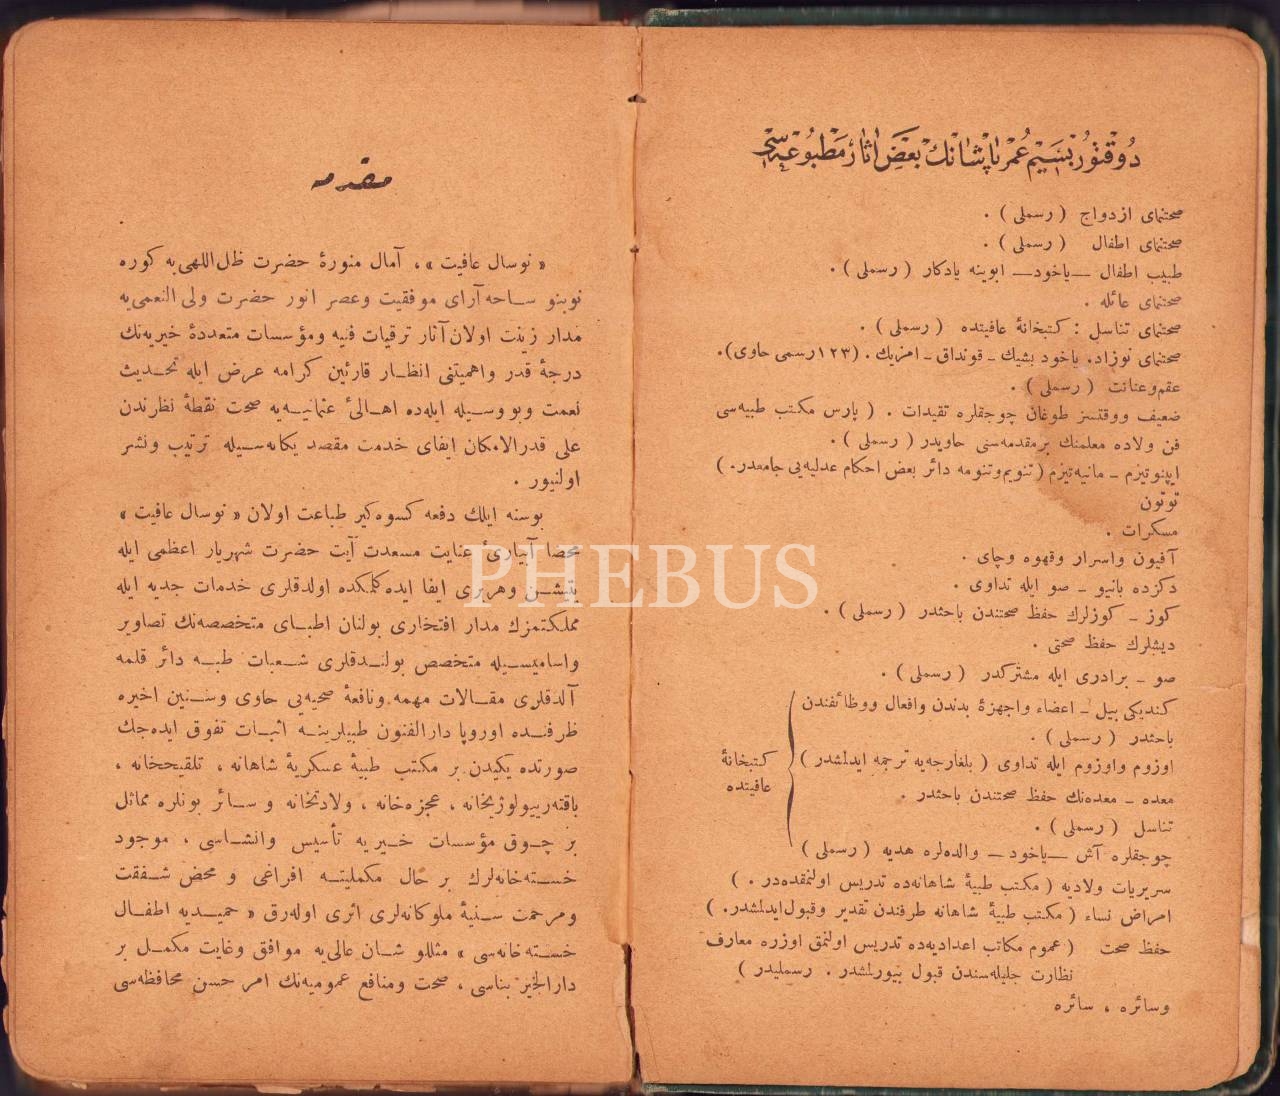 دوقتور بسيم عمر پاشانك بعض آثار مطبوعه سى
صحتنماى ازدواج ( رسملى ) .
صحتنماى اطفال ( رسملى ) .
طبيب اطفال — ياخود — ابوينه يادكار ( رسملى ) .
صحتنماى عائله .
صحتنماى تناسل : كتبخانهٔ عافيتده ( رسملى ) .
صحتنماى نوزاد. ياخود بشيك ـ قونداق ـ امزيك . (١٢٣ رسمى حاوى).
عقم وعنانت ( رسملى ) .
ضعيف ووقتسز طوغان چوجقلره تقيدات . ( پارس مكتب طبيه سى
فن ولاده معلمنك بر مقدمه سنى حاويدر ( رسملى ) .
ايپنوتيزم ـ مانيه تيزم ( تنويم وتنومه دائر بعض احكام عدليه يى جامعدر. )
توتون
مسكرات .
آفيون واسرار وقهوه وچاى .
دكزده بانيو ـ صو ايله تداوى .
كوز ـ كوزلرك حفظ صحتندن باحثدر ( رسملى ) .
ديشلرك حفظ صحتى .
صو ـ برادرى ايله مشتركدر ( رسملى ) .
كنديكى بيل ـ اعضاء واجهزهٔ بدندن وافعال ووظائفندن
باحثدر ( رسملى ) .
اوزوم واوزوم ايله تداوى ( بلغارجه يه ترجمه ايدلمشدر )
معده ـ معده نك حفظ صحتندن باحثدر .
تناسل ( رسملى ) .
چوجقلره آش — ياخود — والده لره هديه ( رسملى )
كتبخانهٔ
عافيتده
سريريات ولاديه ( مكتب طبيهٔ شاهانه ده تدريس اولنمقده در . )
امراض نساء ( مكتب طبيهٔ شاهانه طرفندن تقدير وقبول ايدلمشدر. )
حفظ صحت ( عموم مكاتب اعداديه ده تدريس اولنمق اوزره معارف
نظارت جليله سندن قبول بيورلمشدر . رسمليدر )
وسائره ، سائره
مقدمه
« نوسال عافيت » ، آمال منورهٔ حضرت ظل اللهى به كوره
نوبنو ساحه آراى موفقيت وعصر انور حضرت ولى النعمى يه
مدار زينت اولان آثار ترقيات فنيه ومؤسسات متعددهٔ خيريه نك
درجهٔ قدر واهميتنى انظار قارئين كرامه عرض ايله تحديث
نعمت وبو وسيله ايله ده اهالئ عثمانيه يه صحت نقطهٔ نظرندن
على قدر الامكان ايفاى خدمت مقصد يكانه سيله ترتيب ونشر
اولنيور .
بوسنه ايلك دفعه كسوه كير طباعت اولان « نوسال عافيت »
محضا آبيارئ عنايت مسعدت آيت حضرت شهريار اعظمى ايله
يتيشن وهربرى ايفا ايده كلمكده اولدقلرى خدمات جديه ايله
مملكتمزك مدار افتخارى بولنان اطباى متخصصه نك تصاوير
واساميسيله متخصص بولندقلرى شعبات طبيه دائر قلمه
آلدقلرى مقالات مهمه ونافعهٔ صحيه يى حاوى وسنين اخيره
ظرفنده اوروپا دارالفنون طبيلرينه اثبات تفوق ايده جك
صورتده يكيدن بر مكتب طبيهٔ عسكريهٔ شاهانه ، تلقيحخانه ،
باقته رييولوژيخانه ، عجزه خانه ، ولادتخانه و سائر بونلره مماثل
بر چوق مؤسسات خيريه تأسيس وانشاسى ، موجود
خسته خانه لرك بر حال مكمليته افراغى و محض شفقت
ومرحمت سنيهٔ ملوكانه لرى اثرى اوله رق « حميديه اطفال
خسته خانه سى » مثللو شان عالى يه موافق وغايت مكمل بر
دار الخير بناسى ، صحت ومنافع عموميه نك امر حسن محافظه سى
PHEBUS